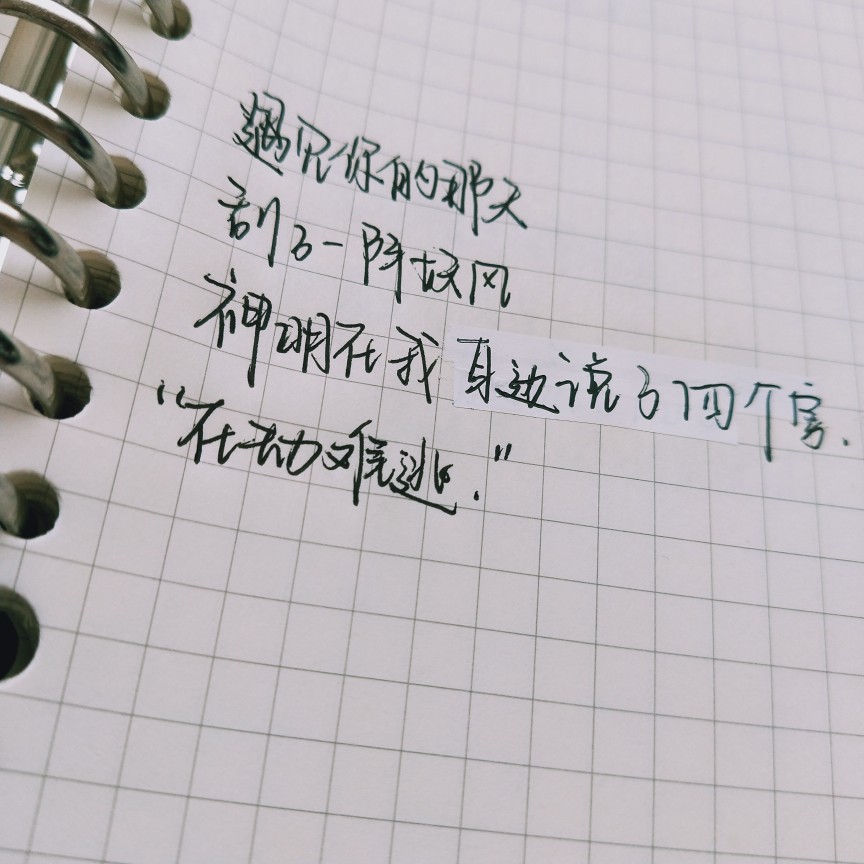 遇见你的那天
刮了一阵妖风
神明在我身边说了四个字.
“在劫难逃.”